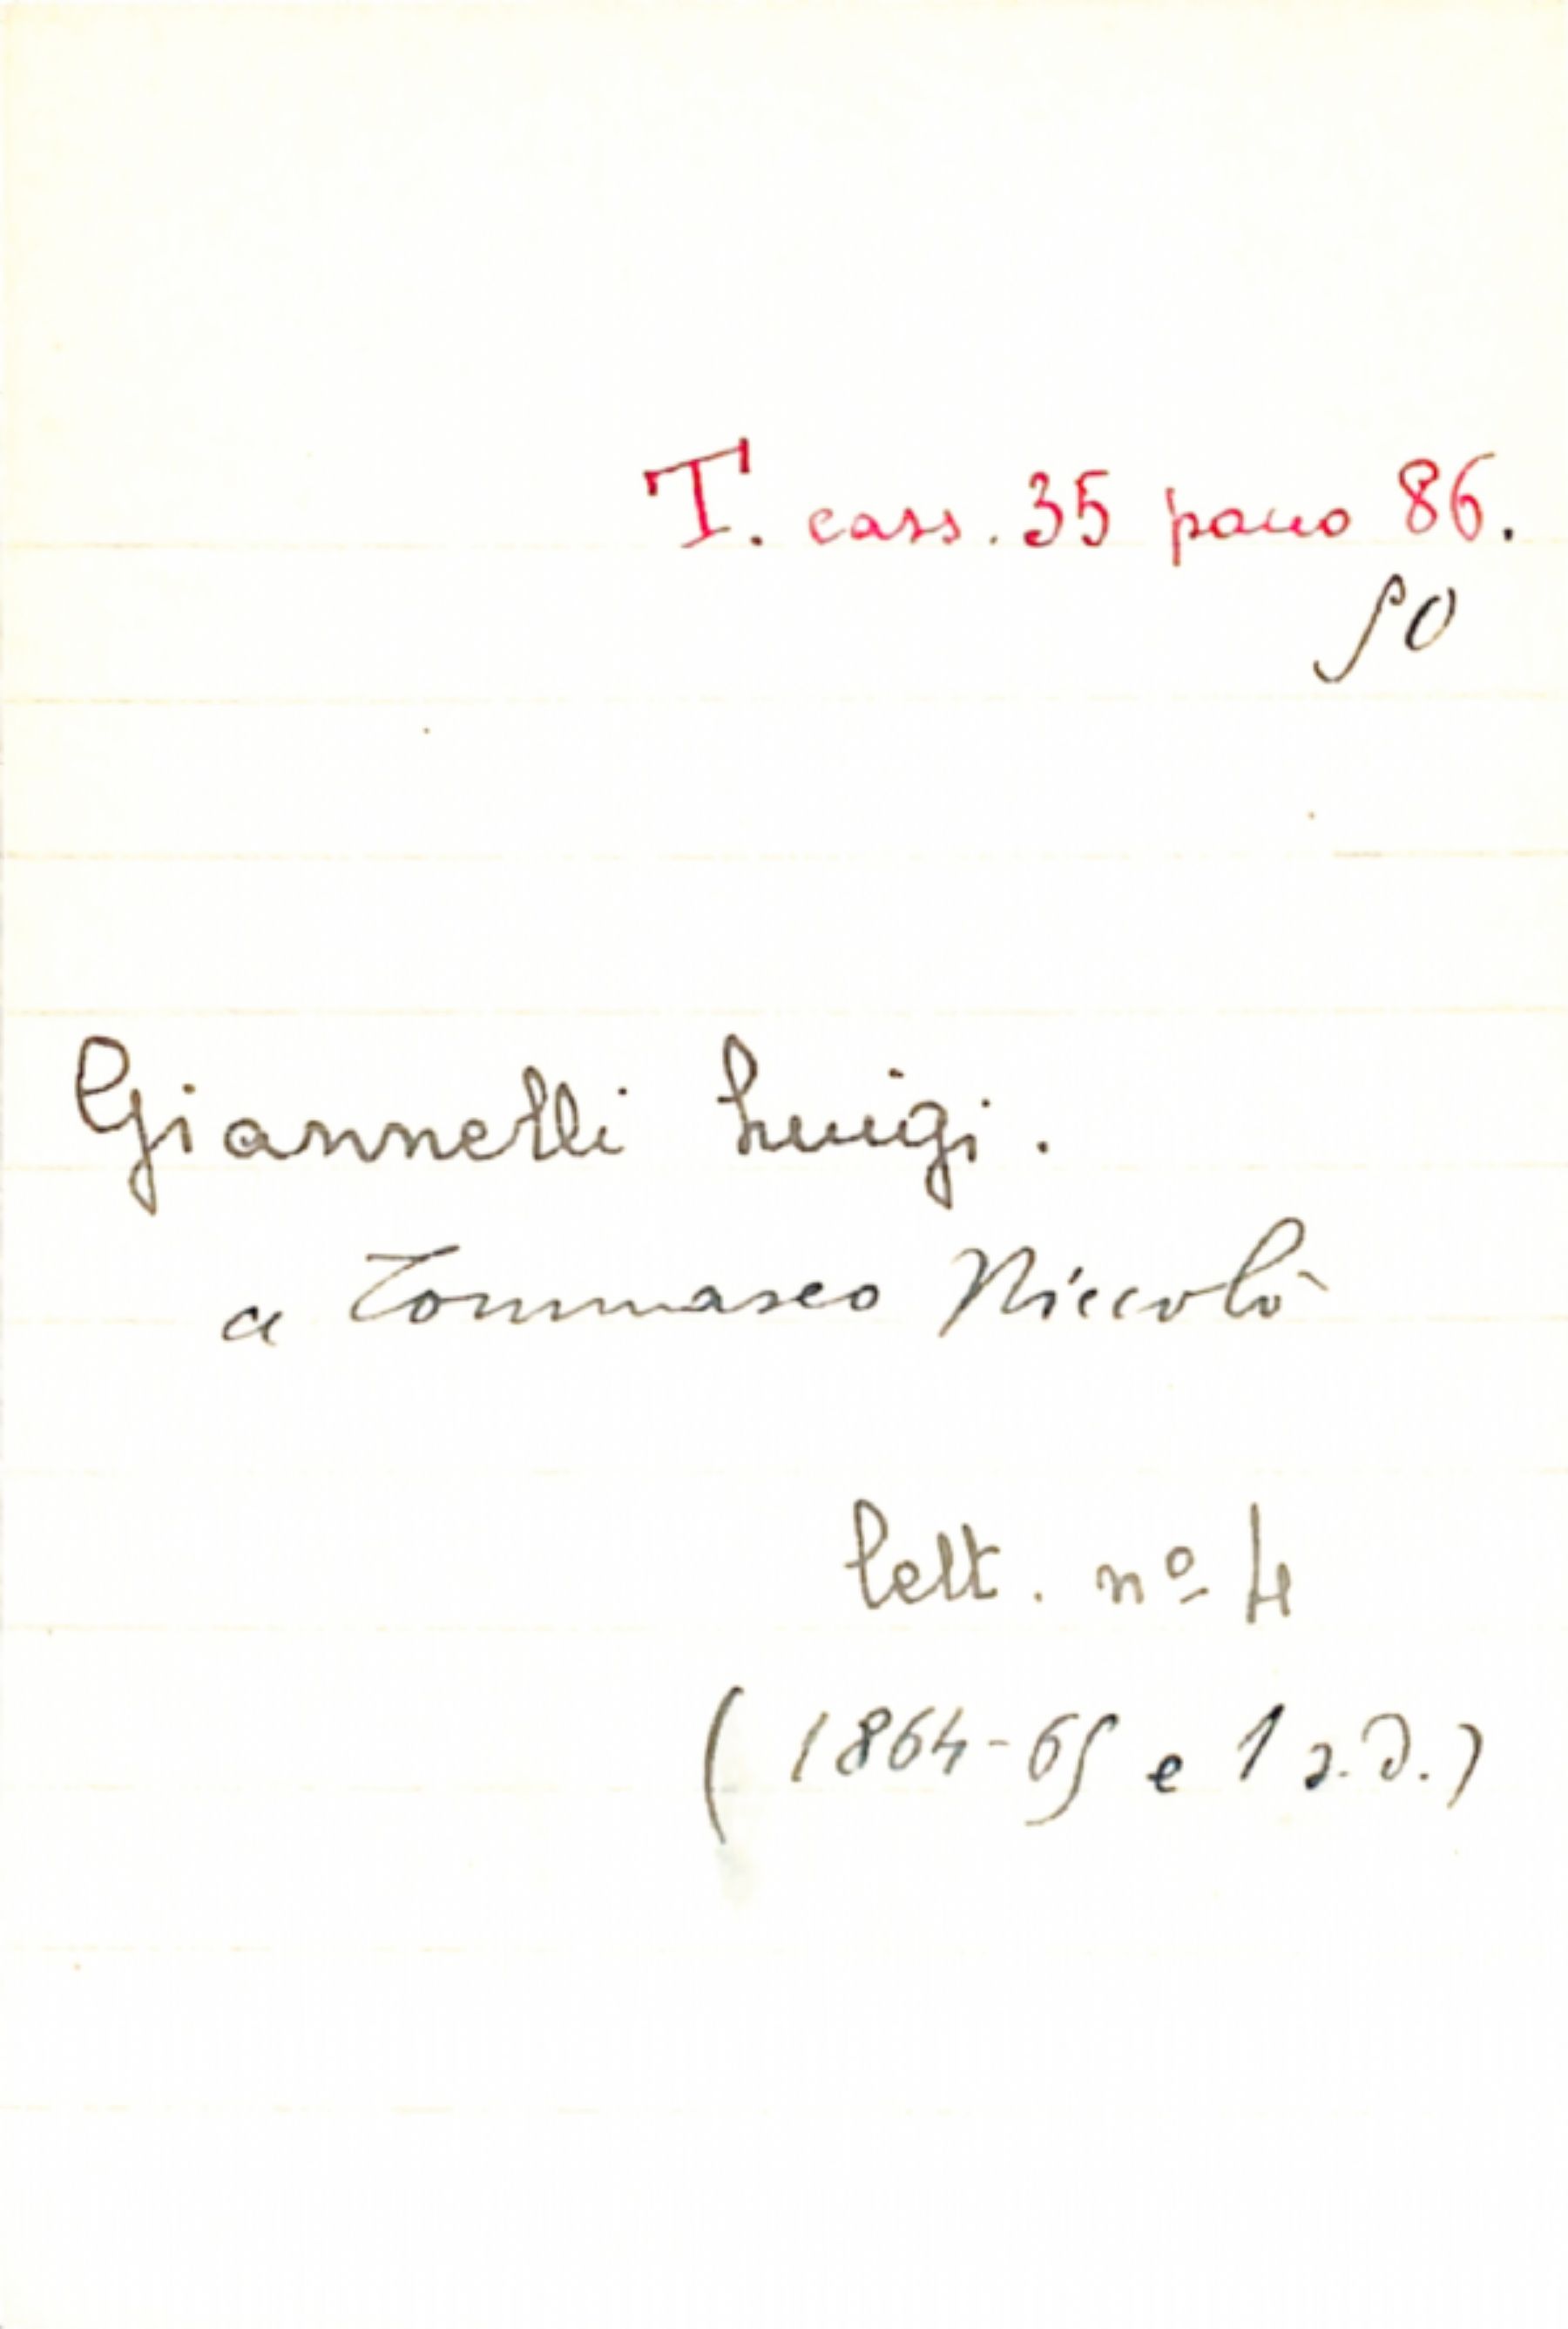 T. cass. 35 pacco 86.
50
Giannelli Luigi.
a Tommaseo Niccolò
lett. nº 4
(1864-65 e 1 s.d.)